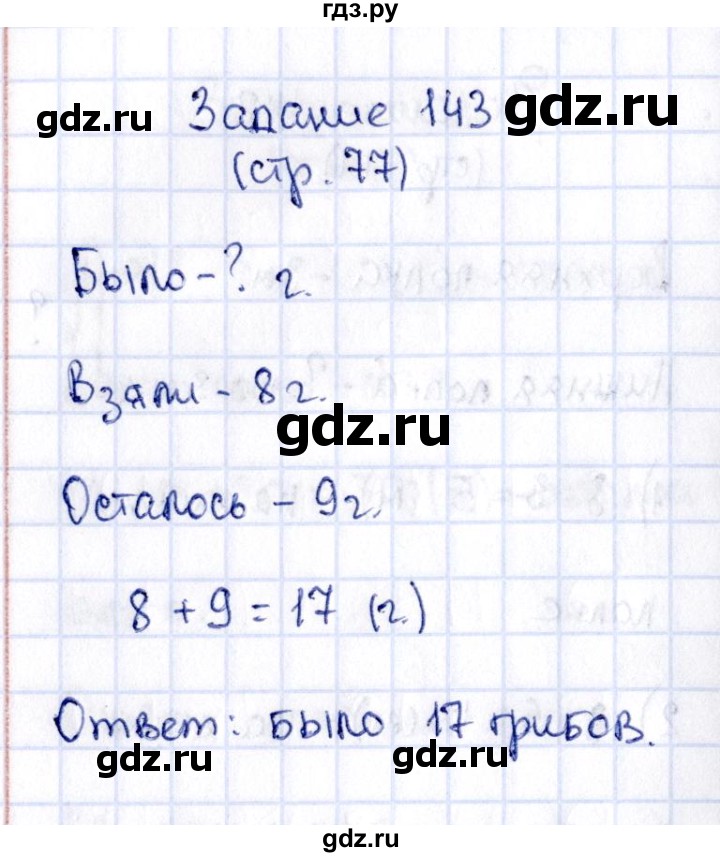 гдз.ру
gdz.ru Задание 143 gdz.ru
(стр. 77)
Было - ? г.
Взяли - 8 г.
gdz.ru
Осталось - 9 г.
8 + 9 = 17 (г.)
Ответ: было 17 грибов.
gdz.ru gdz.ru
gdz.ru